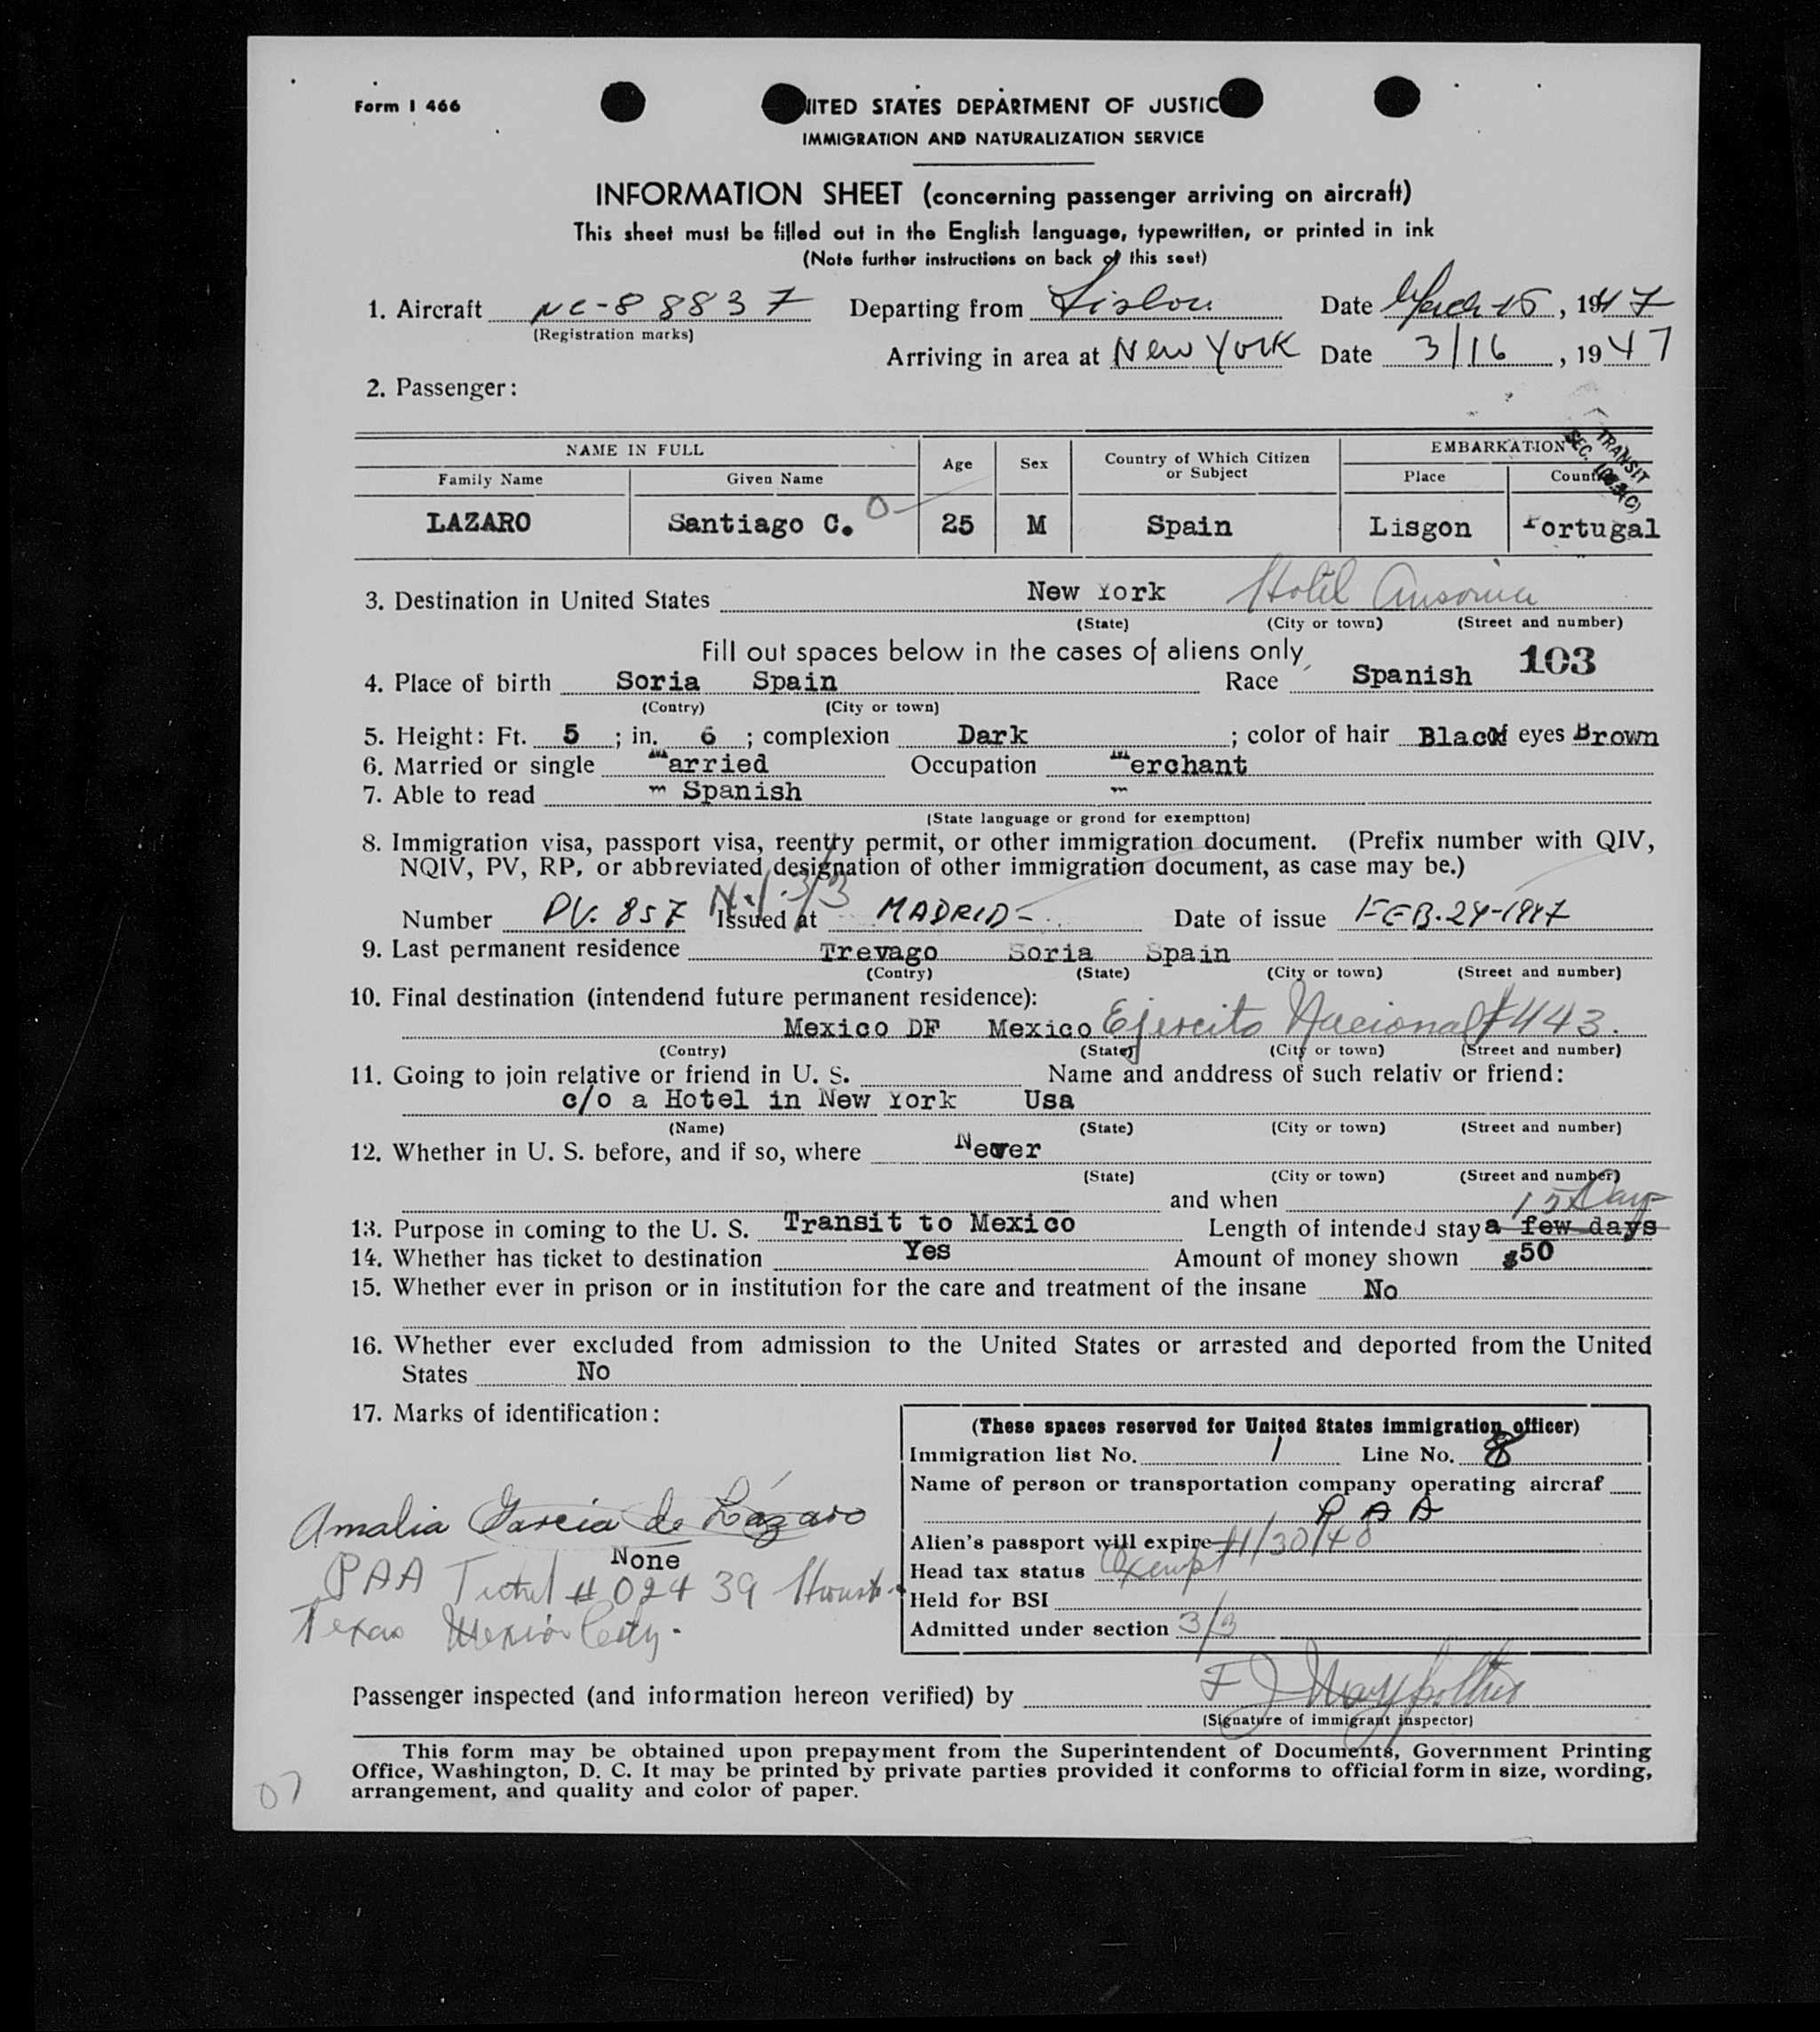 Form I 466
NITED STATES DEPARTMENT OF JUSTIC
IMMIGRATION AND NATURALIZATION SERVICE
INFORMATION SHEET (concerning passenger arriving on aircraft)
This sheet must be filled out in the English language, typewritten, or printed in ink
(Note further instructions on back of this seet)
1. Aircraft NC-88837 Departing from Lisbon Date March 15, 1947
(Registration marks)
Arriving in area at New York Date 3/16, 1947
2. Passenger:
TRANSIT
SEC.
NAME IN FULL Age Sex Country of Which Citizen or Subject EMBARKATION
Family Name Given Name Place Count
LAZARO Santiago C. 25 M Spain Lisgon Portugal
3. Destination in United States New York Hotel Ansonia
(State) (City or town) (Street and number)
Fill out spaces below in the cases of aliens only
4. Place of birth Soria Spain Race Spanish 103
(Contry) (City or town)
5. Height: Ft. 5; in. 6; complexion Dark; color of hair Black eyes Brown
6. Married or single Married Occupation Merchant
7. Able to read " Spanish "
(State language or grond for exemption)
8. Immigration visa, passport visa, reentry permit, or other immigration document. (Prefix number with QIV,
NQIV, PV, RP, or abbreviated designation of other immigration document, as case may be.)
3/3
Number PV. 857 Issued at MADRID- Date of issue FEB. 24-1947
9. Last permanent residence Trevago Soria Spain
(Contry) (State) (City or town) (Street and number)
10. Final destination (intendend future permanent residence):
Mexico DF Mexico Ejercito Nacional #443.
(Contry) (State) (City or town) (Street and number)
11. Going to join relative or friend in U. S. Name and anddress of such relativ or friend:
c/o a Hotel in New York Usa
(Name) (State) (City or town) (Street and number)
12. Whether in U. S. before, and if so, where Never
(State) (City or town) (Street and number)
and when
15 Days
13. Purpose in coming to the U. S. Transit to Mexico Length of intended stay a few days
14. Whether has ticket to destination Yes Amount of money shown $50
15. Whether ever in prison or in institution for the care and treatment of the insane No
16. Whether ever excluded from admission to the United States or arrested and deported from the United
States No
17. Marks of identification:
Amalia Garcia de Lázaro
None
PAA Ticket # 02439 Houst
Texas Mexico City.
(These spaces reserved for United States immigration officer)
Immigration list No. 1 Line No. 8
Name of person or transportation company operating aircraf
P A A
Alien's passport will expire 11/30/48
Head tax status Exempt
Held for BSI
Admitted under section 3/3
Passenger inspected (and information hereon verified) by
(Signature of immigrant inspector)
This form may be obtained upon prepayment from the Superintendent of Documents, Government Printing
Office, Washington, D. C. It may be printed by private parties provided it conforms to official form in size, wording,
arrangement, and quality and color of paper.
07